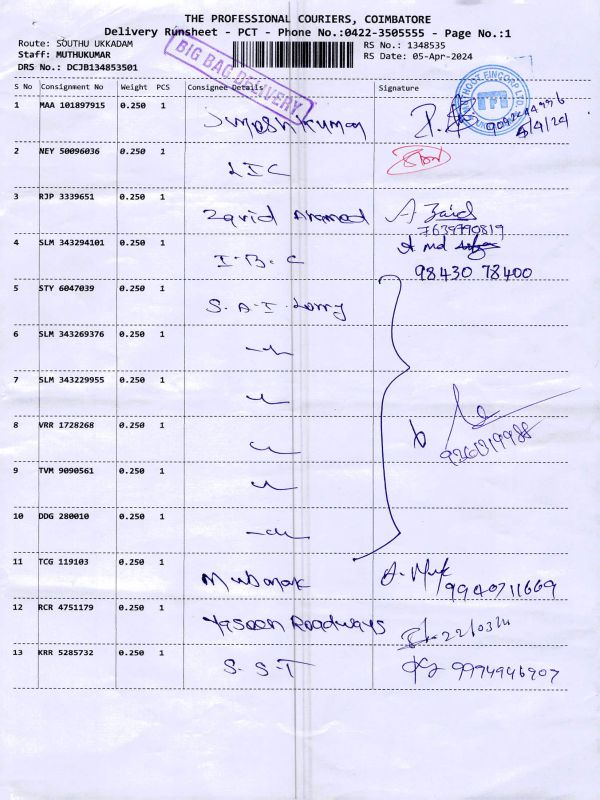 THE PROFESSIONAL COURIERS, COIMBATORE
Delivery Runsheet - PCT - Phone No.:0422-3505555 - Page No.:1
Route: SOUTHU UKKADAM RS No.: 1348535
Staff: MUTHUKUMAR RS Date: 05-Apr-2024
DRS No.: DCJB134853501
BIG BAG DELIVERY
S No Consignment No Weight PCS Consignee Details Signature
1 MAA 101897915 0.250 1
5/4/24
2 NEY 50096036 0.250 1 LIC
3 RJP 3339651 0.250 1 Zavid Ahamed A Zaid
7639770819
4 SLM 343294101 0.250 1 I.B.C md
98430 78400
5 STY 6047039 0.250 1 S.A.I. Lorry
6 SLM 343269376 0.250 1
7 SLM 343229955 0.250 1
8 VRR 1728268 0.250 1
9 TVM 9090561 0.250 1
10 DDG 280010 0.250 1
11 TCG 119103 0.250 1 Mubarak
9940711669
12 RCR 4751179 0.250 1 Yaseen Roadways
13 KRR 5285732 0.250 1 S.S.T 9994946907